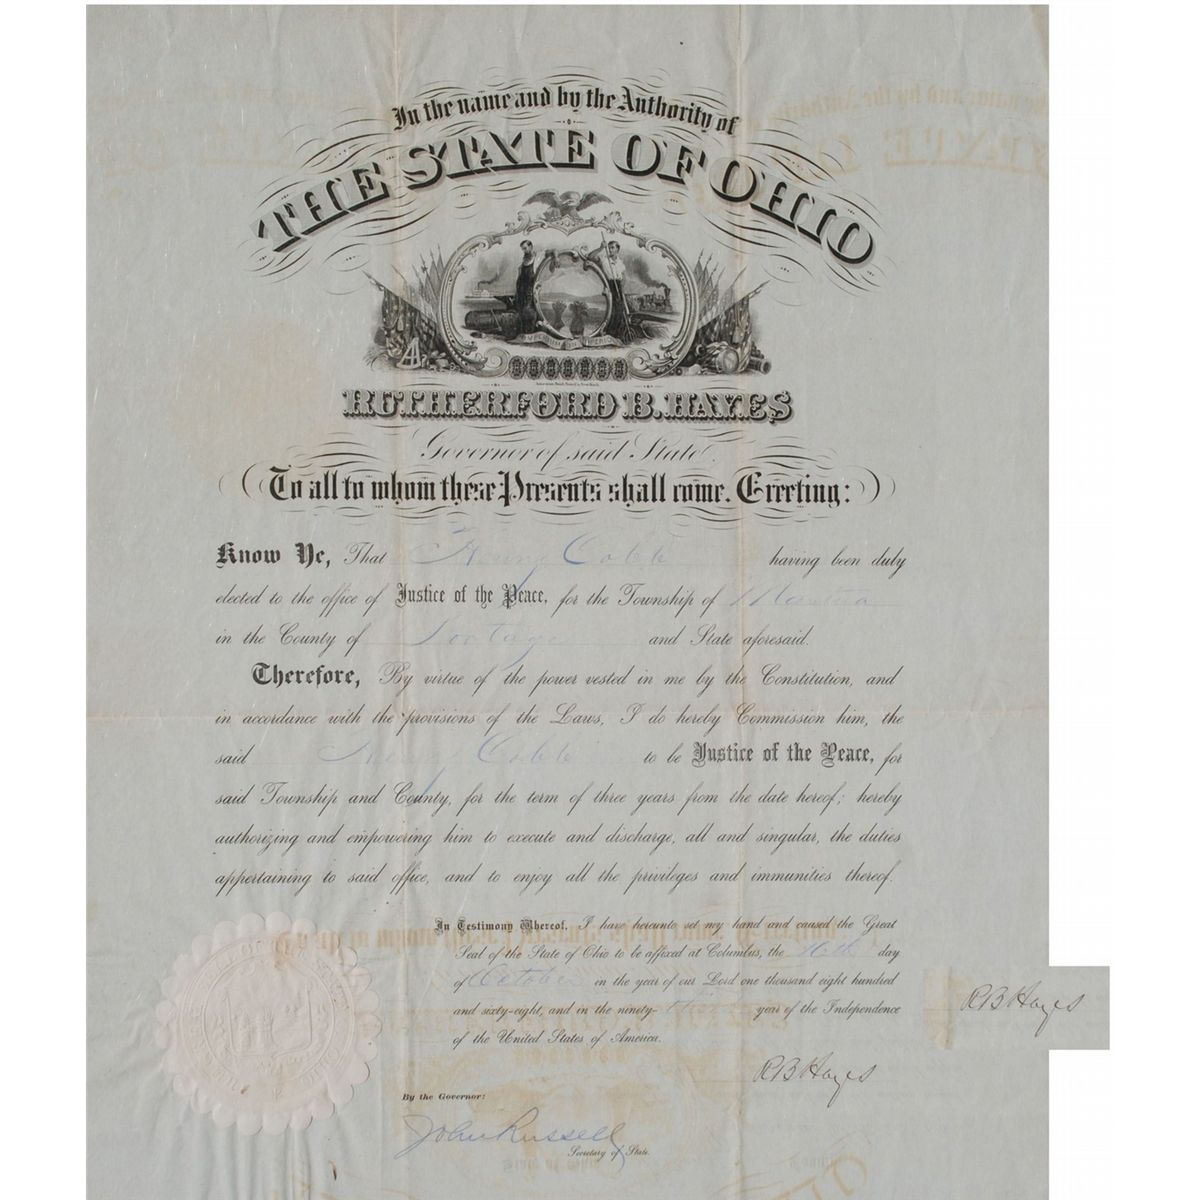 In the name and by the Authority of
THE STATE OF OHIO
American Bank Note Co. New York.
RUTHERFORD B. HAYES
Governor of said State.
To all to whom these Presents shall come. Greeting:
Know Ye, That Henry Cobb having been duly
elected to the office of Justice of the Peace, for the Township of Mantua
in the County of Portage and State aforesaid.
Therefore, By virtue of the power vested in me by the Constitution, and
in accordance with the provisions of the Laws, I do hereby Commission him, the
said Henry Cobb to be Justice of the Peace, for
said Township and County, for the term of three years from the date hereof; hereby
authorizing and empowering him to execute and discharge, all and singular, the duties
appertaining to said office, and to enjoy all the privileges and immunities thereof.
In Testimony Whereof, I have hereunto set my hand and caused the Great
Seal of the State of Ohio to be affixed at Columbus, the 16th day
of October in the year of our Lord one thousand eight hundred
and sixty-eight, and in the ninety-third year of the Independence
of the United States of America.
R B Hayes
R B Hayes
By the Governor:
John Russell
Secretary of State.